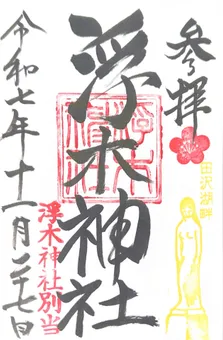 参拝
田沢湖畔
浮木神社
浮木神社別当
令和七年十一月二十七日